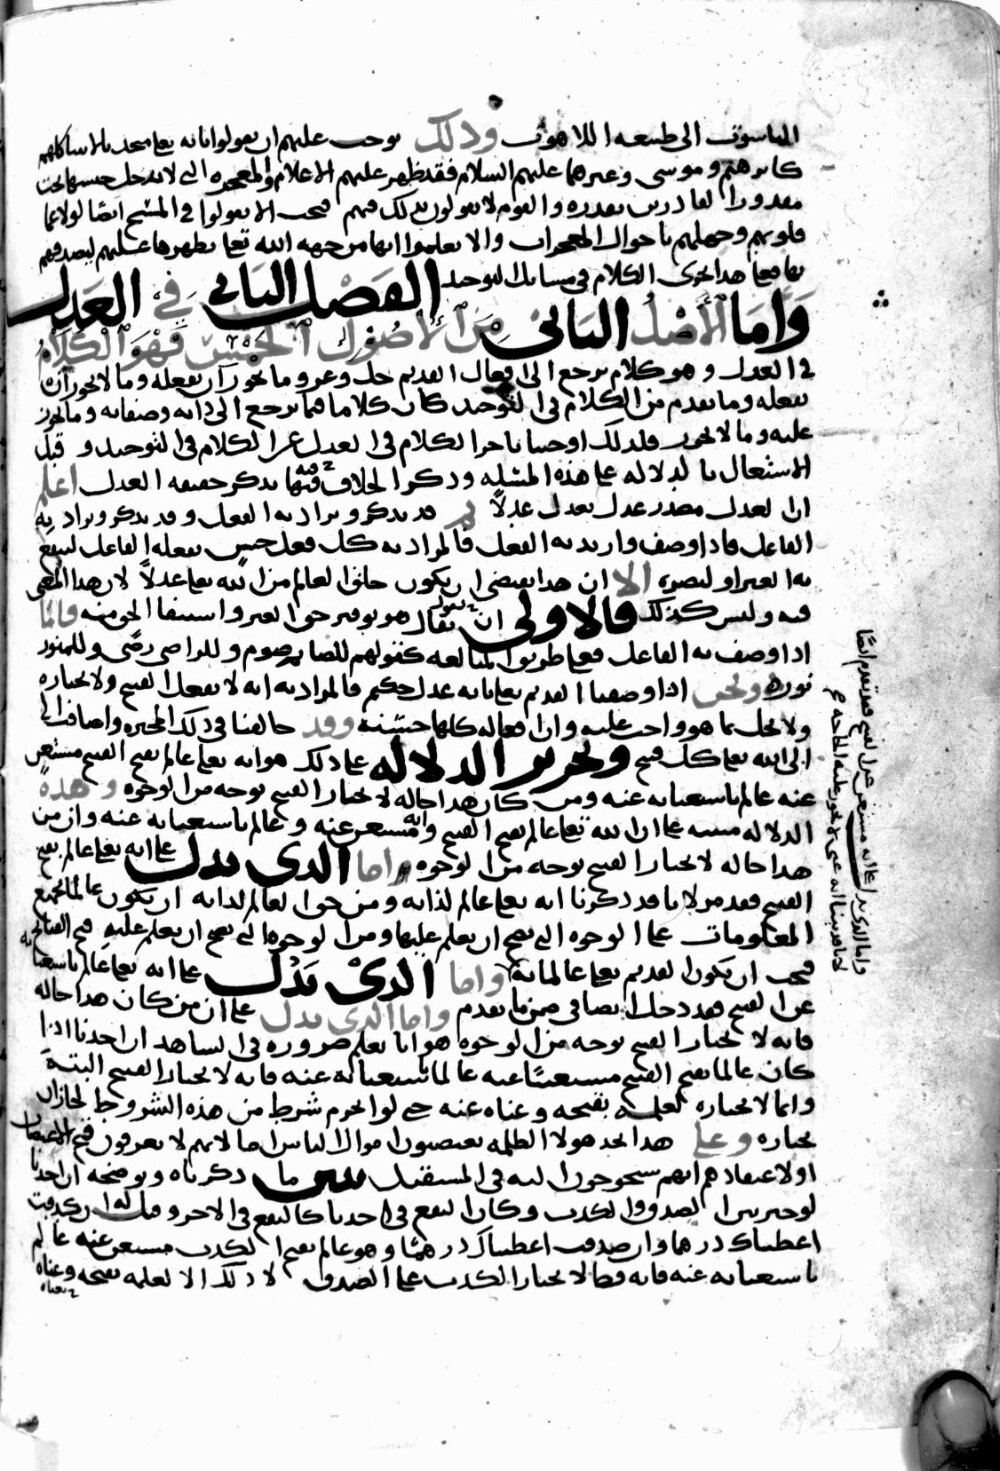 الناسوت الى طبيعه اللاهوت وذلك يوجب عليهم ان يقولوا بانه تعلى متحد بالانبيا كلهم
كابرهيم وموسى وغيرهما عليهم السلام فقد ظهر عليهم الاعلام والمعجزه التي لا يدخل جنسها تحت
مقدور القادرين بقدره والقوم لا يقولون بذلك فيهم فيجب الا يقولوا في المسيح ايضا لولا عما
قلوبهم وجهلهم باحوال المعجزات والا يعلموا انها من جهه الله تعلى يظهرها عليهم ليصدقهم
بها فهذا هو الكلام في مسائل التوحيد الفصل الثاني في العدل
واما الأصل الثاني من الاصول الخمس فهو الكلام
في العدل وهو كلام يرجع الى افعال القديم جل وعز وما يجوز ان يفعله وما لا يجوز ان
يفعله وما تقدم من الكلام في التوحيد كان كلاما فيما يرجع الى ذاته وصفاته وما يجوز
عليه وما لا يجوز فلذلك اوجبنا تاخر الكلام في العدل عن الكلام في التوحيد وقبل
الاشتغال بالدلاله على هذه المسئله وذكر الخلاف فيها نذكر حقيقه العدل اعلم
ان العدل مصدر عدل يعدل عدلا ثم قد يذكر ويراد به الفعل وقد يذكر ويراد به
الفاعل فاذا وصف واريد به الفعل فالمراد به كل فعل حسن يفعله الفاعل لينفع
به الغير او ليضره الا ان هذا يقتضي ان يكون خلق العالم من الله تعلى عدلا لان هذا المعنى
فيه وليس كذلك فالاولى ان نقول هو توفير حق الغير واستيفا الحق منه فاما
اذا وصف به الفاعل فعلى طريق المبالغه كقولهم للصايم صوم وللراضي رضى وللمنور
نور ونحن اذا وصفنا القديم تعلى بانه عدل حكيم فالمراد به انه لا يفعل القبيح ولا يختاره
ولا يخل بما هو واجب عليه وان افعاله كلها حسنه وقد خالفنا في ذلك المجبره واضافوا
الى الله تعلى كل قبيح وتحرير الدلاله على ذلك هو انه تعلى عالم بقبح القبيح مستغن
عنه عالم باستغنائه عنه ومن كان هذا حاله لا يختار القبيح بوجه من الوجوه وهذه
الدلاله مبنيه على ان الله تعلى عالم بقبح القبيح وانه مستغن عنه وعالم باستغنائه عنه وان من
هذا حاله لا يختار القبيح بوجه من الوجوه واما الذي يدل على انه تعلى عالم بقبح
القبيح فقد مر لانا قد ذكرنا انه تعلى عالم لذاته ومن حق العالم لذاته ان يكون عالما بجميع
المعلومات على الوجوه التي يصح ان يعلم عليها ومن الوجوه التي يصح ان يعلم عليه قبح القبائح
فيجب ان يكون القديم تعلى عالما به واما الذي يدل على انه تعلى عالم باستغنائه
عن القبيح فقد دخل ايضا في ضمن ما تقدم واما الذي يدل على ان من كان هذا حاله
فانه لا يختار القبيح بوجه من الوجوه هو انا نعلم ضروره في الشاهد ان احدنا اذا
كان عالما بقبح القبيح مستغنيا عنه عالما باستغنائه عنه فانه لا يختار القبيح البتة
وانما لا يختاره لعلمه بقبحه وغناه عنه حتى لو انخرم شرط من هذه الشروط لجاز ان
يختاره وعلى هذا نجد هولا الظلمه يغتصبون اموال الناس اما لانهم لا يعرفون قبح الاغتصاب
او لاعتقادهم انهم سيحتاجون اليه في المستقبل يبين ما ذكرناه ويوضحه ان احدنا
لو خير بين الصدق والكذب وكان النفع في احدهما كالنفع في الاخر وقيل له ان كذبت
اعطيناك درهما وان صدقت اعطيناك درهما وهو عالم بقبح الكذب مستغن عنه عالم
باستغنائه عنه فانه قط لا يختار الكذب على الصدق لا ذلك الا لعلمه بقبحه وغناه
واما الذي يدل على انه مستغن عن القبيح فقد تقدم ايضا
لانا قد بينا انه غني لا تجوز عليه الحاجه